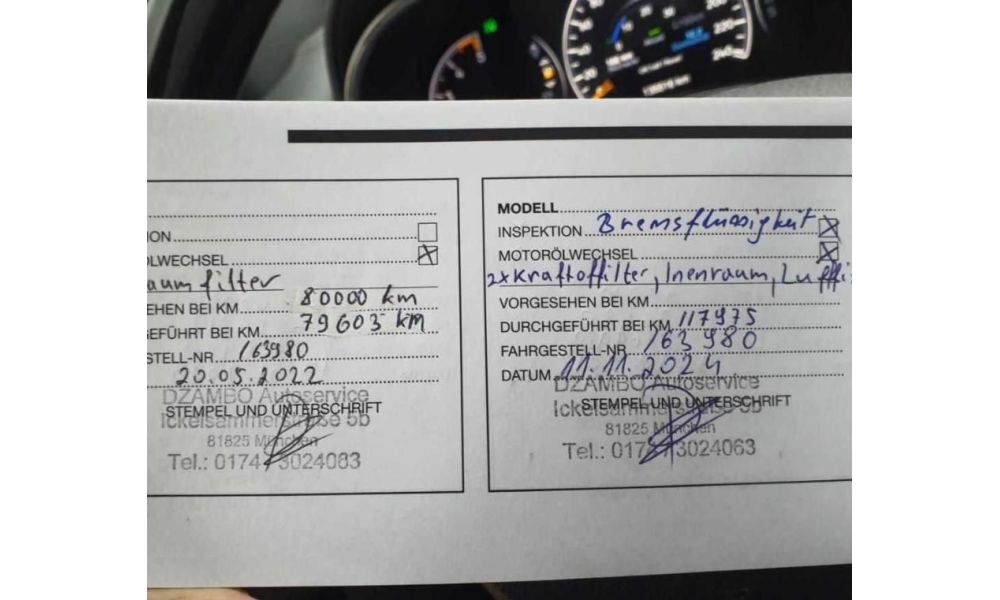 ION
ÖLWECHSEL
aumfilter
EHEN BEI KM 80000 km
EFÜHRT BEI KM 79603 km
STELL-NR 163980
20.05.2022
DZAMBO Autoservice
STEMPEL UND UNTERSCHRIFT
Ickelsammerstraße 5b
81825 München
Tel.: 0174 3024063
MODELL
INSPEKTION Bremsflüssigkeit
MOTORÖLWECHSEL
2xKraftoffilter, Inenraum, Luffi
VORGESEHEN BEI KM
DURCHGEFÜHRT BEI KM 117975
FAHRGESTELL-NR 163980
DATUM 11.11.2024
DZAMBO Autoservice
STEMPEL UND UNTERSCHRIFT
Ickelsammerstraße 5b
81825 München
Tel.: 0174 3024063